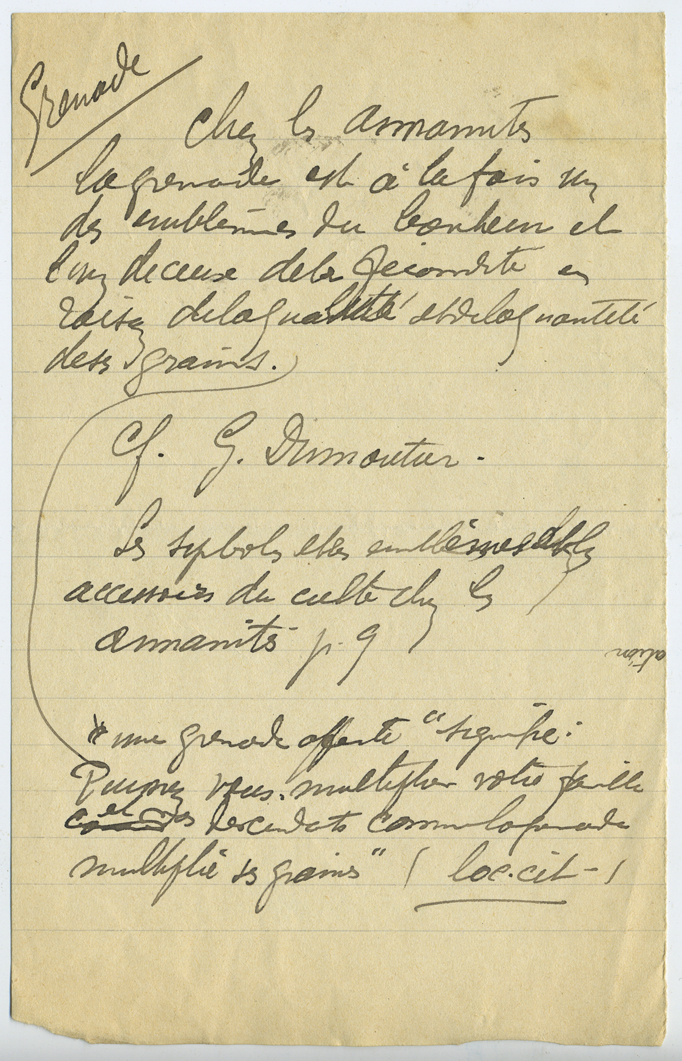 Grenade
Chez les annamites
la grenade est à la fois un
des emblèmes du bonheur et
de la fécondité en
raison de la qualité et de la quantité
de ses grains.
Cf. G. Dumoutier.
Les symboles et les emblèmes et les
accessoires du culte chez les
annamites p. 9
"une grenade offerte" signifie :
Puissiez vous multiplier votre famille
et vos descendants comme la grenade
multiplie ses grains" (loc. cit-)
ation